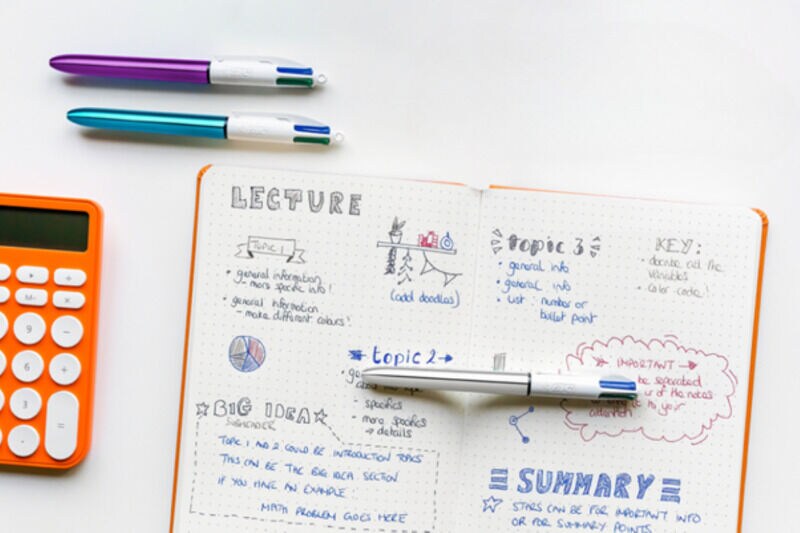 LECTURE
TOPIC 1
• general information
- more specific info!
• general information
- make different colours!
(add doodles)
topic 2
- specifics
- more specifics
→ details
BIG IDEA
SUBHEADER
TOPIC 1 AND 2 COULD BE INTRODUCTION TOPICS
THIS CAN BE THE BIG IDEA SECTION
IF YOU HAVE AN EXAMPLE:
MATH PROBLEM GOES HERE
topic 3
• general info
• general info
• list: number or
bullet point
KEY:
• describe all the
variables
• color-code!
IMPORTANT
be separated
of the notes
to your
attention
SUMMARY
STARS CAN BE FOR IMPORTANT INFO
OR FOR SUMMARY POINTS.
M-
×
9
−
6
+
3
=